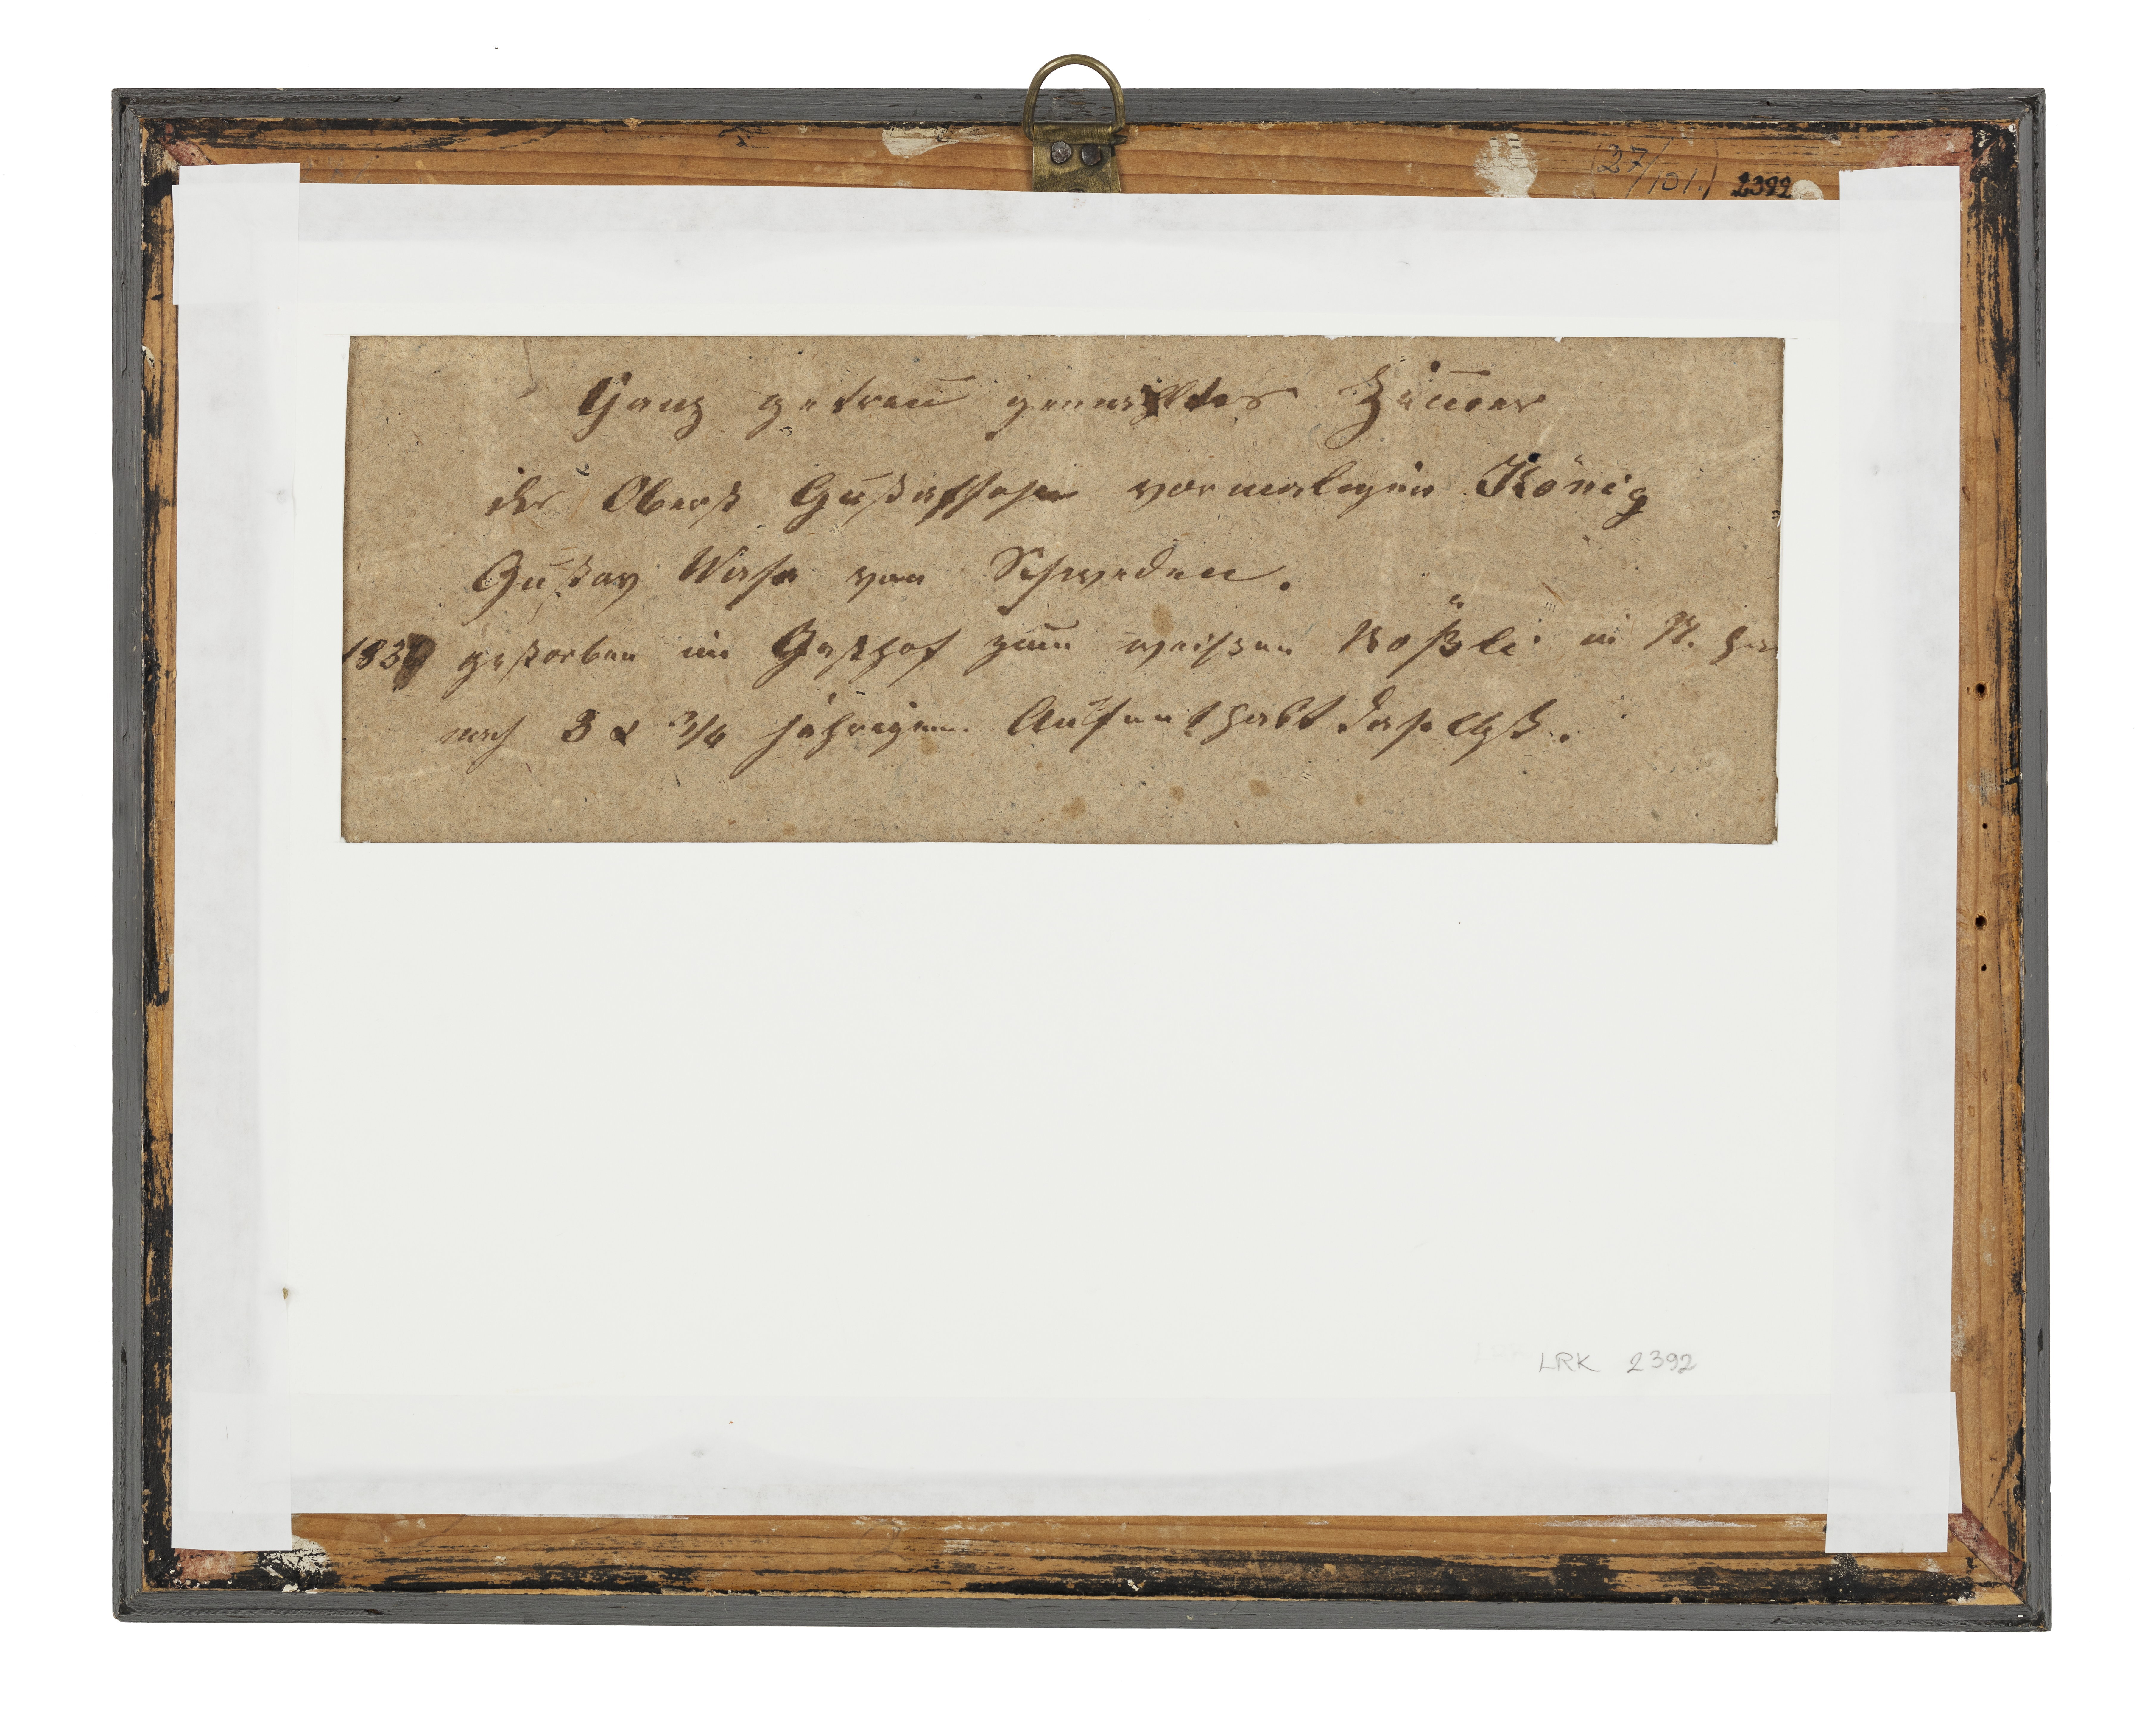 27/101.) 2392
Ganz getreu gemachtes Zim̅er
des Oberst Gustafsohn vormaligen König
Gustav Wasa von Schweden.
gestorben im Gasthof zum weissen Rößli in St.
nach 3 & 3/4 jährigem Aufenthalt daselbst.
LRK 2392